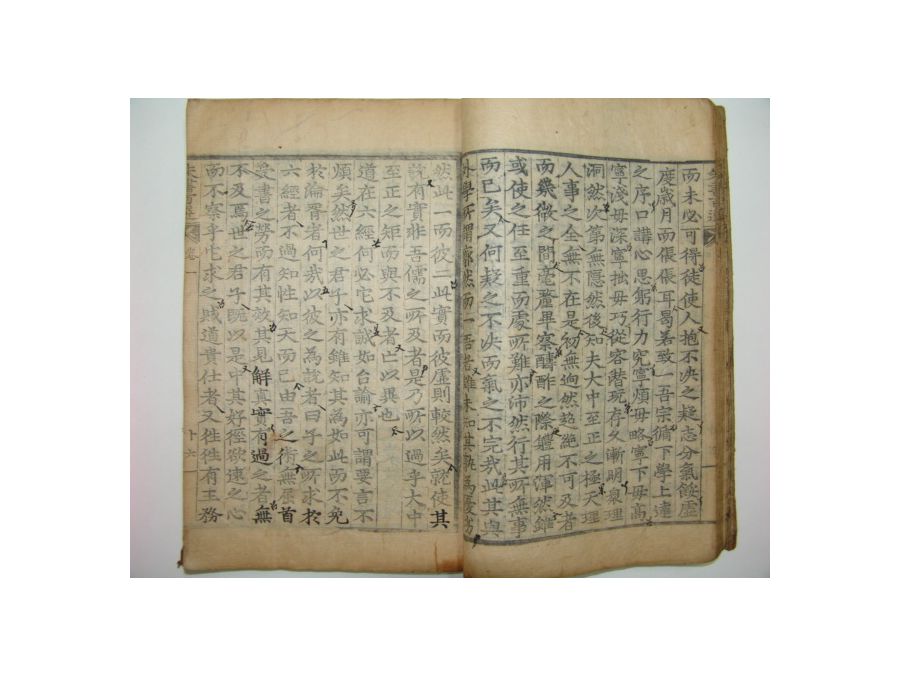 而未必可得徒使人抱不決之疑志分氣餒虛
度歲月而倀倀耳曷若致一吾宗循下學上達
之序口講心思躬行力究寧煩毋略寧下毋高
寧淺毋深寧拙毋巧從容潛玩存久漸明衆理
洞然次第無隱然後知夫大中至正之極天理
人事之全無不在是初無迥然超絶不可及者
而幾微之間毫釐畢察酬酢之際軆用渾然雖
或使之任至重而處所難亦沛然行其所無事
而已矣又何疑之不決而氣之不完哉此其與
外學所謂廓然而一悟者雖未知其孰爲優劣
然此一而彼二此實而彼虛則較然矣就使其
說有實非吾儒之所及者是乃所以過乎大中
至正之矩而與不及者亡以異也
道在六經何必它求誠如台諭亦可謂要言不
煩矣然世之君子亦有雖知其爲如此而不免
於淪胥者何哉以彼之爲說者曰子之所求於
六經者不過知性知天而已由吾之術無屈首
受書之勞而有其效其見解真實有過之者無
不及焉世之君子旣以是中其好徑欲速之心
而不察乎它求之賊道貴仕者又往往有王務
卷一
十六